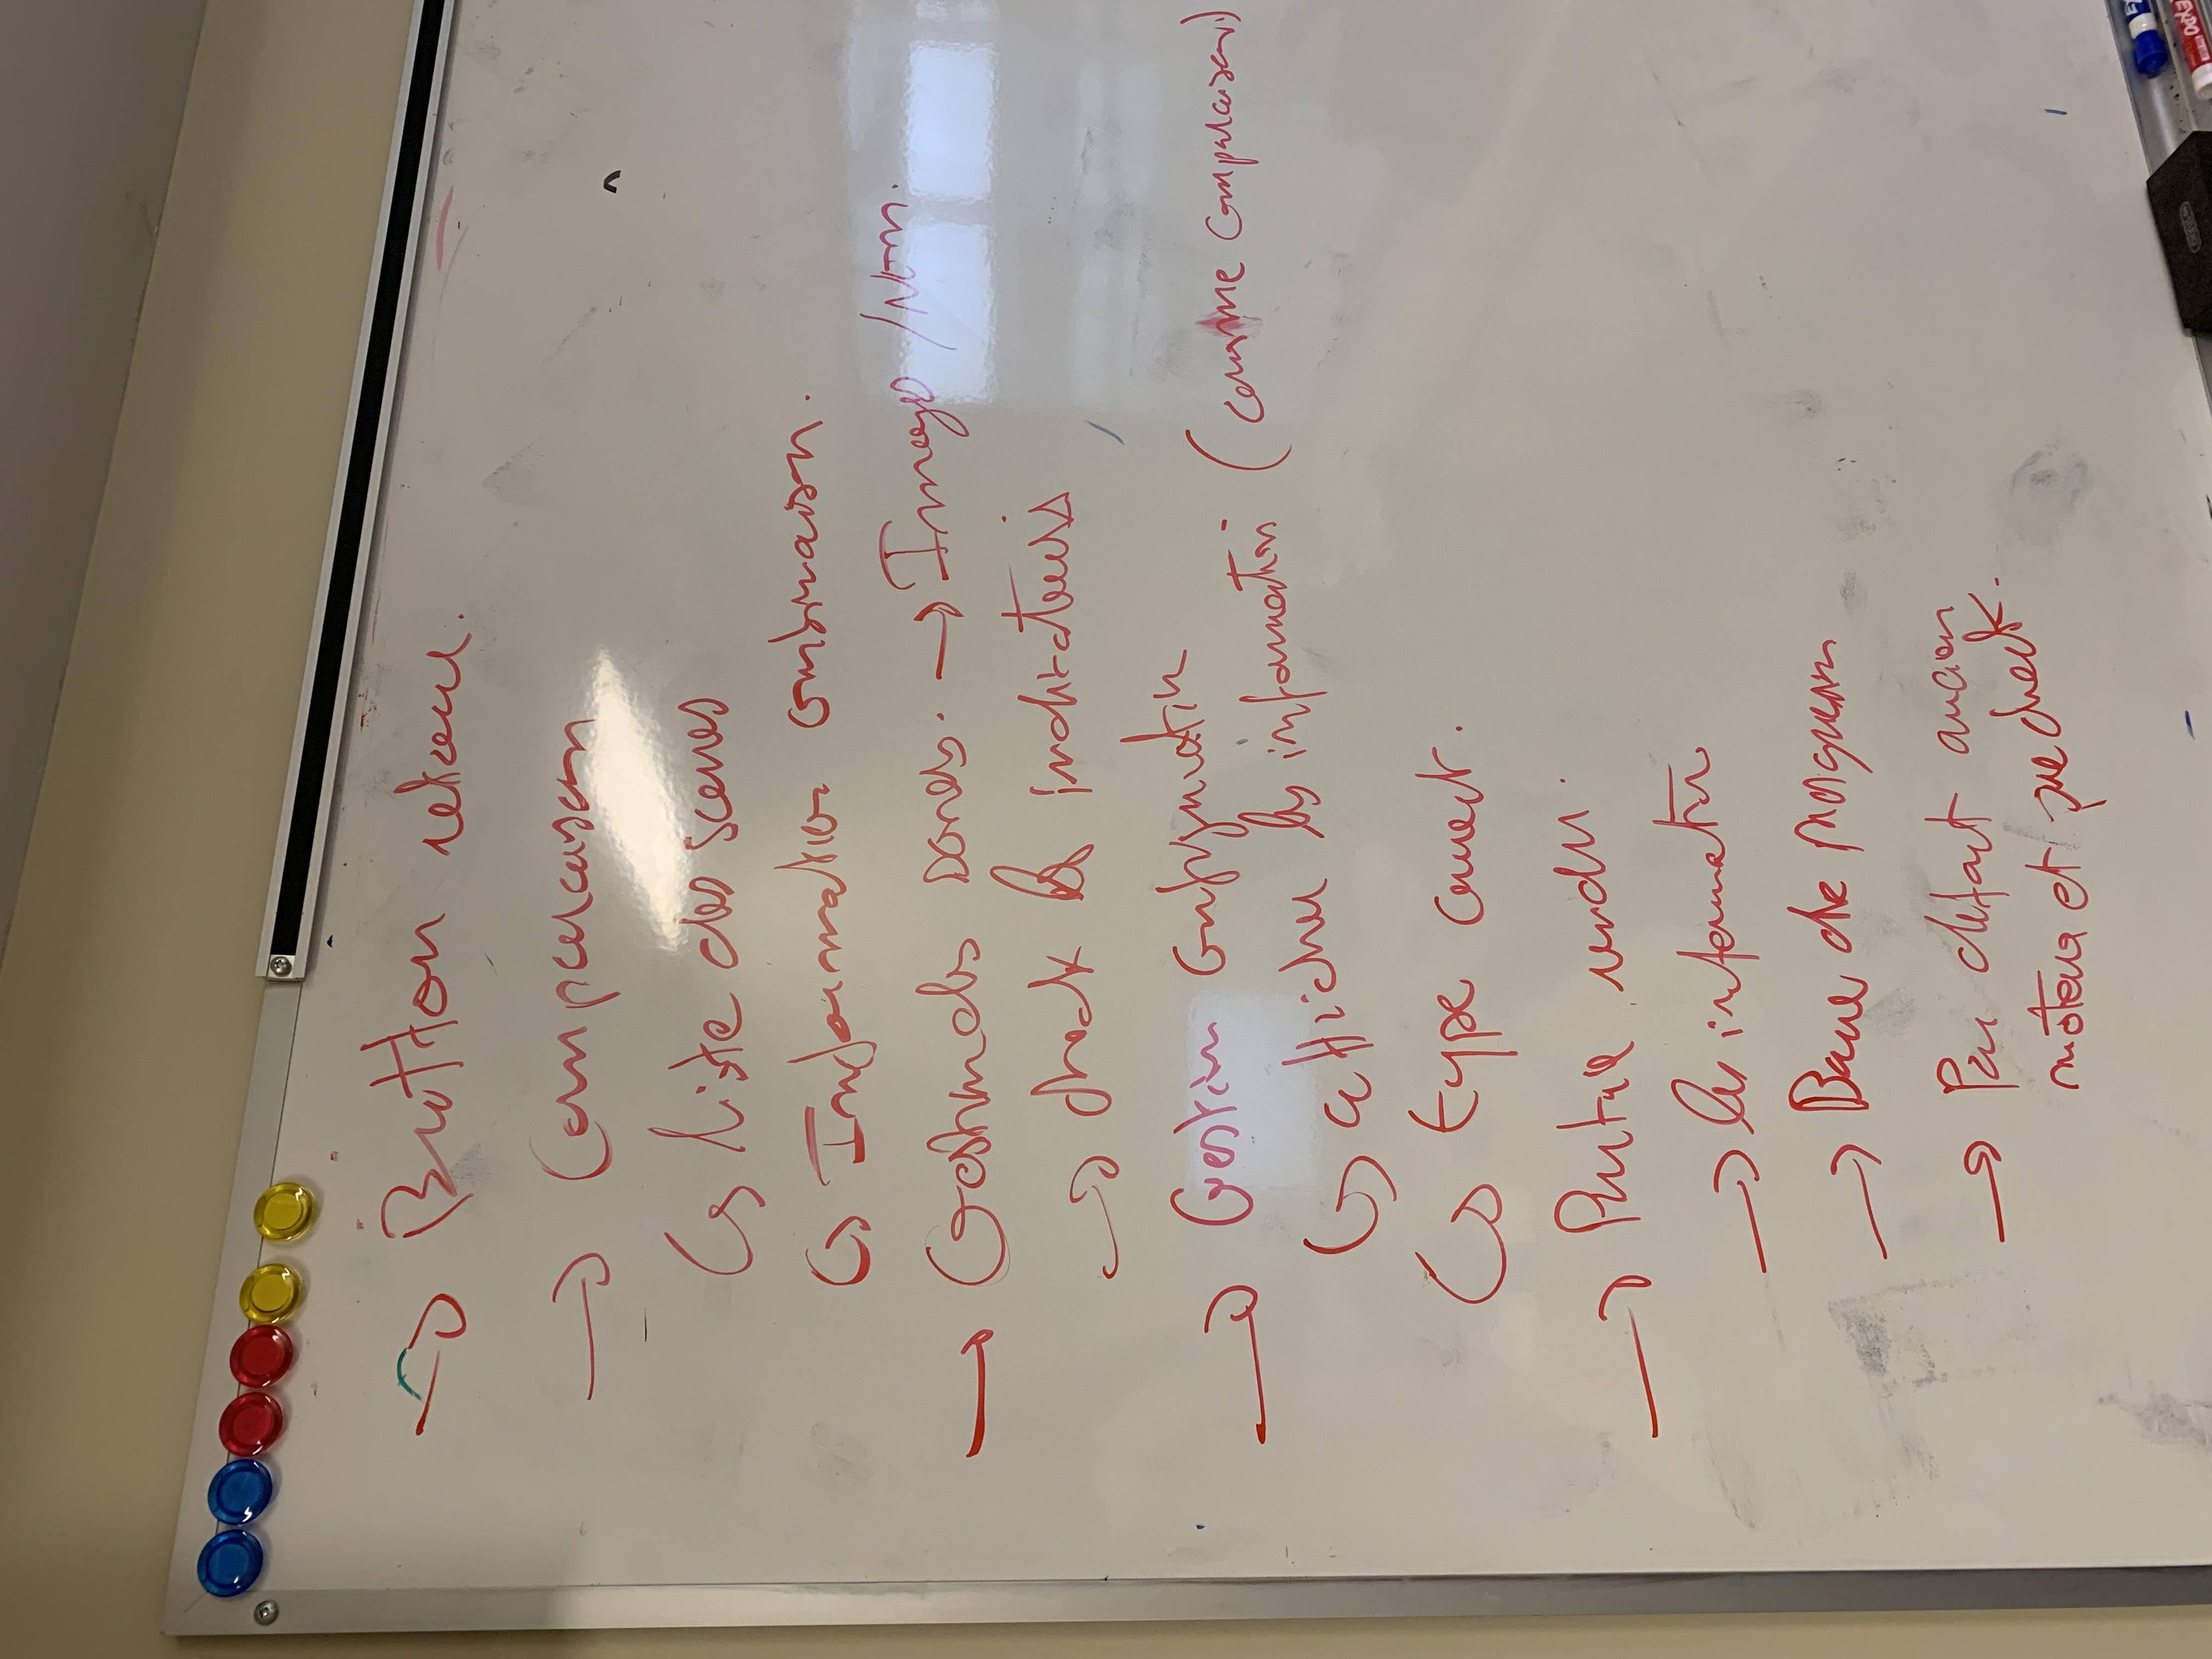 → Button retour.
→ Comparaison
↳ liste des scenes
↳ Information combinaison.
→ Gestion des scenes. → Images / Nom.
→ check les indicateurs
→ Gestion configuration
↳ afficher les information (comme comparaison)
↳ type correct.
→ Partie rendu.
→ les information
→ Barre de progression
→ Par defaut aucun
moteur et pre check.
EXPO